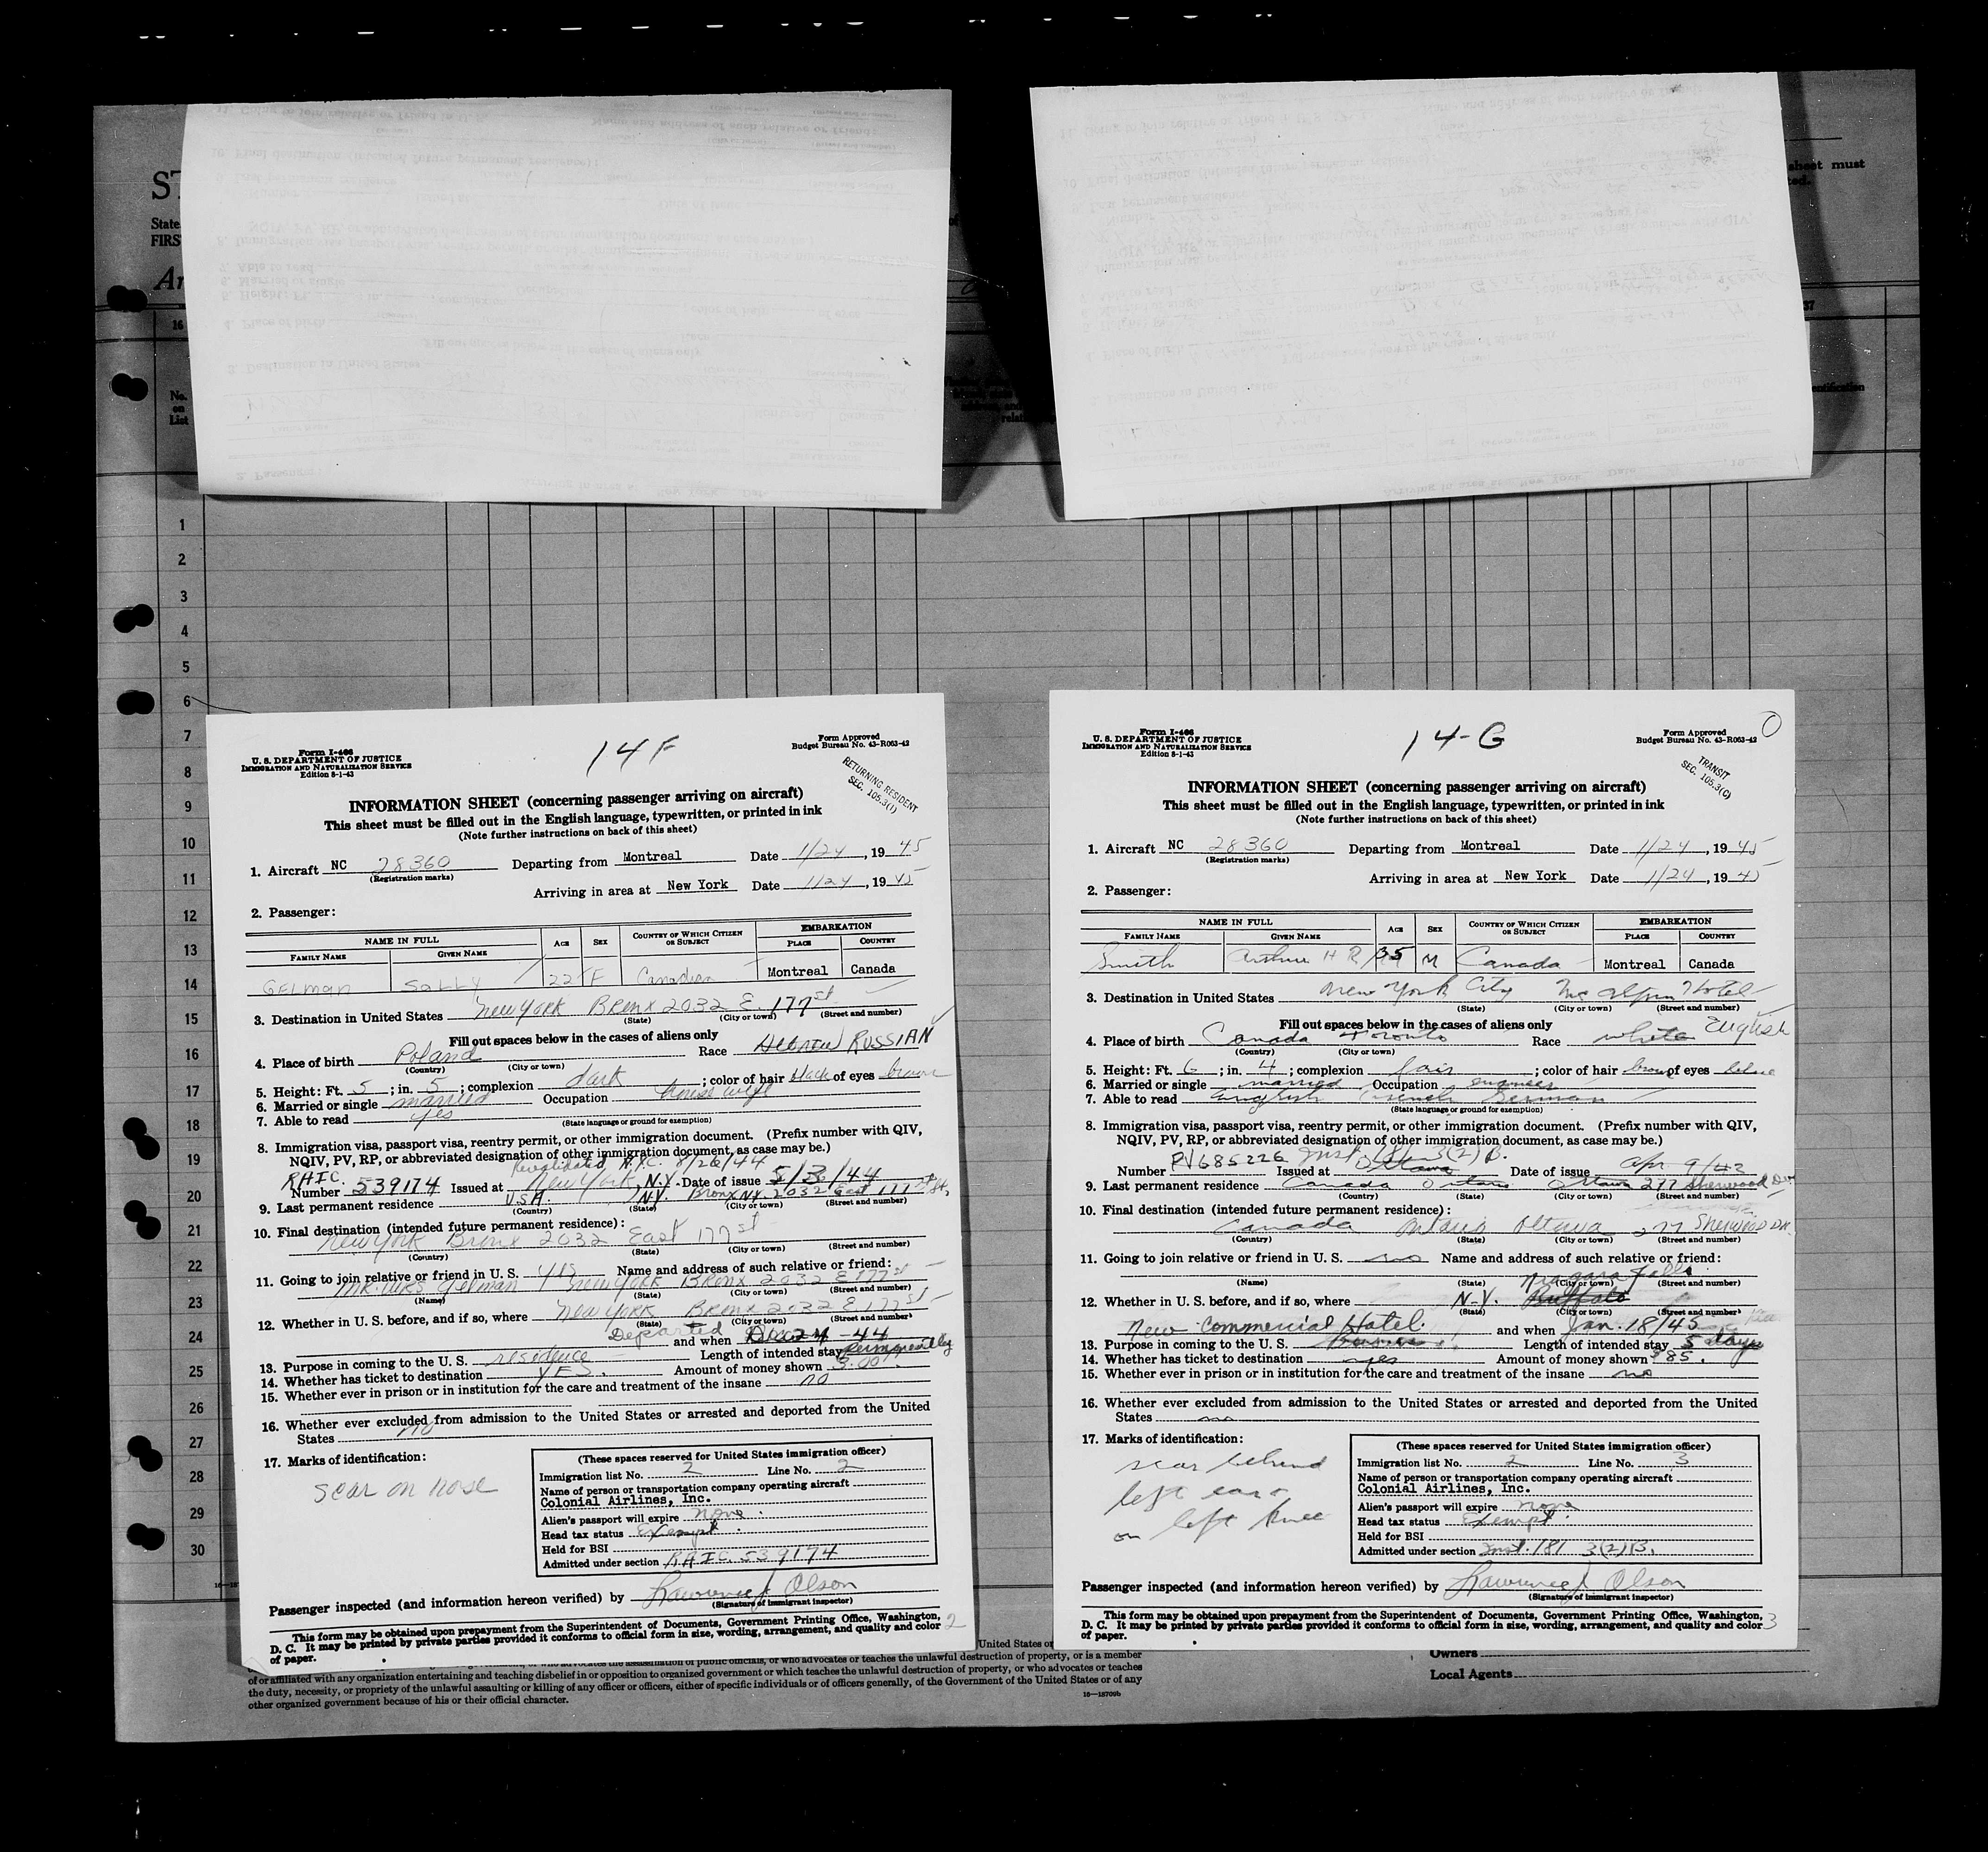 ST
State
FIRS
Ar
sheet must
ed.
16
37
No.
on
List
relat
entification
1
2
3
4
5
6
7
8
9
10
11
12
13
14
15
16
17
18
19
20
21
22
23
24
25
26
27
28
29
30
Form I-466
U. S. DEPARTMENT OF JUSTICE
IMMIGRATION AND NATURALIZATION SERVICE
Edition 8-1-43
14 F
Form Approved
Budget Bureau No. 43-R063-42
RETURNING RESIDENT
SEC. 105.3(1)
INFORMATION SHEET (concerning passenger arriving on aircraft)
This sheet must be filled out in the English language, typewritten, or printed in ink
(Note further instructions on back of this sheet)
1. Aircraft NC 28360 Departing from Montreal Date 1/24, 1945
(Registration marks)
Arriving in area at New York Date 1/24, 1945
2. Passenger:
NAME IN FULL AGE SEX COUNTRY OF WHICH CITIZEN OR SUBJECT EMBARKATION
FAMILY NAME GIVEN NAME PLACE COUNTRY
GELMAN SALLY 22 F Canadian Montreal Canada
3. Destination in United States New York Bronx 2032 E. 177 st
(State) (City or town) (Street and number)
Fill out spaces below in the cases of aliens only
4. Place of birth Poland Race Hebrew RUSSIAN
(Country) (City or town)
5. Height: Ft. 5; in. 5; complexion dark; color of hair black of eyes brown
6. Married or single married Occupation house wife
7. Able to read yes
(State language or ground for exemption)
8. Immigration visa, passport visa, reentry permit, or other immigration document. (Prefix number with QIV,
NQIV, PV, RP, or abbreviated designation of other immigration document, as case may be.)
Revalidated N.Y.C. 8/26/44
RAIC.
Number 539174 Issued at New York, N.Y. Date of issue 5/3/44
9. Last permanent residence U.S.A. N.Y. Bronx N.Y. 2032 East 177 St.
(Country) (State) (City or town) (Street and number)
10. Final destination (intended future permanent residence):
New York Bronx 2032 East 177 st
(Country) (State) (City or town) (Street and number)
11. Going to join relative or friend in U. S. yes Name and address of such relative or friend:
MR. MRS Gelman New York Bronx 2032 E 177 st
(Name) (State) (City or town) (Street and number)
12. Whether in U. S. before, and if so, where New York Bronx 2032 E 177 st
(State) (City or town) (Street and number)
Departed and when Dec 24 - 44
13. Purpose in coming to the U. S. residence Length of intended stay permanently
14. Whether has ticket to destination YES. Amount of money shown 3.00
15. Whether ever in prison or in institution for the care and treatment of the insane no
16. Whether ever excluded from admission to the United States or arrested and deported from the United
States no
17. Marks of identification:
scar on nose
(These spaces reserved for United States immigration officer)
Immigration list No. 2 Line No. 2
Name of person or transportation company operating aircraft
Colonial Airlines, Inc.
Alien's passport will expire none
Head tax status Exempt
Held for BSI
Admitted under section RAIC. 539174
Passenger inspected (and information hereon verified) by Lawrence J Olson
(Signature of immigrant inspector)
This form may be obtained upon prepayment from the Superintendent of Documents, Government Printing Office, Washington,
D. C. It may be printed by private parties provided it conforms to official form in size, wording, arrangement, and quality and color
of paper.
2
Form I-466
U. S. DEPARTMENT OF JUSTICE
IMMIGRATION AND NATURALIZATION SERVICE
Edition 8-1-43
14-G
Form Approved
Budget Bureau No. 43-R063-42
TRANSIT
SEC. 105.3(C)
INFORMATION SHEET (concerning passenger arriving on aircraft)
This sheet must be filled out in the English language, typewritten, or printed in ink
(Note further instructions on back of this sheet)
1. Aircraft NC 28360 Departing from Montreal Date 1/24, 1945
(Registration marks)
Arriving in area at New York Date 1/24, 1945
2. Passenger:
NAME IN FULL AGE SEX COUNTRY OF WHICH CITIZEN OR SUBJECT EMBARKATION
FAMILY NAME GIVEN NAME PLACE COUNTRY
Smith Arthur H R 35 M Canada Montreal Canada
3. Destination in United States New York City McAlpin Hotel
(State) (City or town) (Street and number)
Fill out spaces below in the cases of aliens only
4. Place of birth Canada Toronto Race white English
(Country) (City or town)
5. Height: Ft. 6; in. 4; complexion fair; color of hair brown of eyes blue
6. Married or single married Occupation engineer
7. Able to read English French German
(State language or ground for exemption)
8. Immigration visa, passport visa, reentry permit, or other immigration document. (Prefix number with QIV,
NQIV, PV, RP, or abbreviated designation of other immigration document, as case may be.)
Number PV685226 Inst. 181 3(2)B. Issued at Ottawa Date of issue Apr 9/43
9. Last permanent residence Canada Ontario Ottawa 277 Sherwood Dr
(Country) (State) (City or town) (Street and number)
10. Final destination (intended future permanent residence):
Canada Ontario Ottawa 277 Sherwood DR.
(Country) (State) (City or town) (Street and number)
11. Going to join relative or friend in U. S. no Name and address of such relative or friend:
(Name) (State) (City or town) (Street and number)
Niagara Falls
12. Whether in U. S. before, and if so, where N-Y. Buffalo
(State) (City or town) (Street and number)
New Commercial Hotel. and when Jan. 18/45
13. Purpose in coming to the U. S. business Length of intended stay 5 days
14. Whether has ticket to destination yes Amount of money shown $85.
15. Whether ever in prison or in institution for the care and treatment of the insane no
16. Whether ever excluded from admission to the United States or arrested and deported from the United
States no
17. Marks of identification:
scar behind
left ear
on left knee
(These spaces reserved for United States immigration officer)
Immigration list No. 2 Line No. 3
Name of person or transportation company operating aircraft
Colonial Airlines, Inc.
Alien's passport will expire none
Head tax status Exempt
Held for BSI
Admitted under section Inst. 181 3(2)B.
Passenger inspected (and information hereon verified) by Lawrence J Olson
(Signature of immigrant inspector)
This form may be obtained upon prepayment from the Superintendent of Documents, Government Printing Office, Washington,
D. C. It may be printed by private parties provided it conforms to official form in size, wording, arrangement, and quality and color
of paper.
3
United States or
of public officials, or who advocates or teaches the unlawful destruction of property, or is a member
of or affiliated with any organization entertaining and teaching disbelief in or opposition to organized government or which teaches the unlawful destruction of property, or who advocates or teaches
the duty, necessity, or propriety of the unlawful assaulting or killing of any officer or officers, either of specific individuals or of officers generally, of the Government of the United States or of any
other organized government because of his or their official character.
16—18709b
Owners
Local Agents